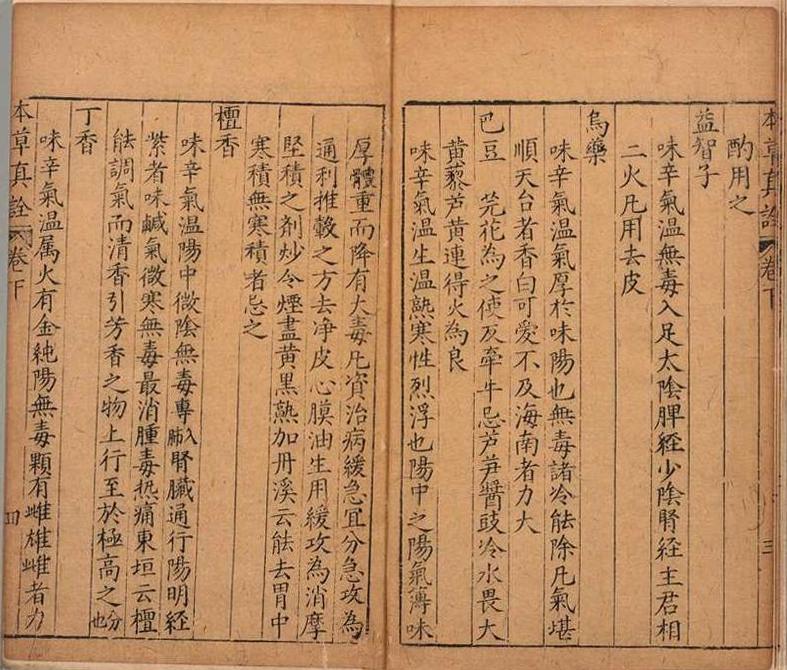 本草真詮 卷下 三
酌用之
益智子
味辛氣溫無毒入足太陰脾經少陰腎經主君相
二火凡用去皮
烏藥
味辛氣溫氣厚於味陽也無毒諸冷能除凡氣堪
順天台者香白可愛不及海南者力大
巴豆 芫花為之使反牽牛忌芦笋醬豉冷水畏大
黃藜芦黃連得火為良
味辛氣溫生溫熟寒性烈浮也陽中之陽氣薄味
厚體重而降有大毒凡資治病緩急宜分急攻為
通利推轂之方去净皮心膜油生用緩攻為消摩
堅積之剂炒令煙盡黃黑熟加丹溪云能去胃中
寒積無寒積者忌之
檀香
味辛氣溫陽中微陰無毒專入肺腎臟通行陽明經
紫者味鹹氣微寒無毒最消腫毒热痛東垣云檀
能調氣而清香引芳香之物上行至於極高之分也
丁香
味辛氣溫属火有金純陽無毒顆有雌雄雌者力
本草真詮 卷下 四